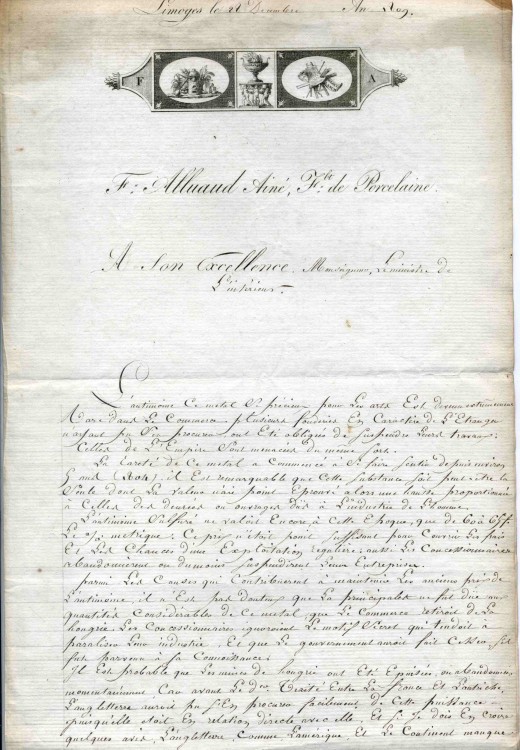 Limoges le 28 Décembre An 1809.
F A
Fs. Alluaud Ainé, Fbt. de Porcelaine.
A Son Excellence Monseigneur, Le ministre de
L'intérieur.
L'antimoine Ce métal Si précieux pour Les arts Est devenu extrêmement
Rare dans Le Commerce plusieurs fonderies En Caractère de L'Etranger
n'ayant pu S'en procurer ont Eté obligés de suspendre Leurs travaux.
Celles de L'Empire Sont menacées du même sort.
La Rareté de Ce métal a Commencé à Se faire Sentir depuis environ
5 ans (1804) il Est remarquable que Cette Substance soit peut-être la
Seule dont La valeur n'aie point Eprouvé alors une hausse proportionnée
à Celles des denrées ou ouvrages dûs à L'industrie de L'homme.
L'antimoine Sulfuré ne valoit Encore, à Cette Epoque, que de 60 à 65 F.
Le % métrique; Ce prix n'était point Suffisant pour Couvrir Les frais
Et Les Chances d'une Exploitation régulière; aussi Les Concessionnaires
Abandonnèrent ou du moins Suspendirent Leurs Entreprises.
parmi Les Causes qui Contribuèrent à maintenir Les anciens prix de
L'antimoine il n'Est pas douteux que La principale ne fut dûe aux
quantités Considérables de Ce métal, que Le Commerce retiroit de La
hongrie. Les Concessionnaires ignoroient Le motif Secret qui tendoit à
paraliser Leur industrie, Et que Le gouvernement auroit fait Cesser s'il
fut parvenu à Sa Connoissance.
Il Est probable que Les mines de hongrie ont Eté Epuisées, ou abandonnées
momentanément Car avant Le der. Traité Entre La france Et L'autriche,
L'angleterre auroit pu S'En procurer facilement de Cette puissance
puisqu'elle étoit En relation directe avec elle, Et Si Je dois En croire
quelques avis, L'angleterre, Comme L'amérique Et Le Continent manque